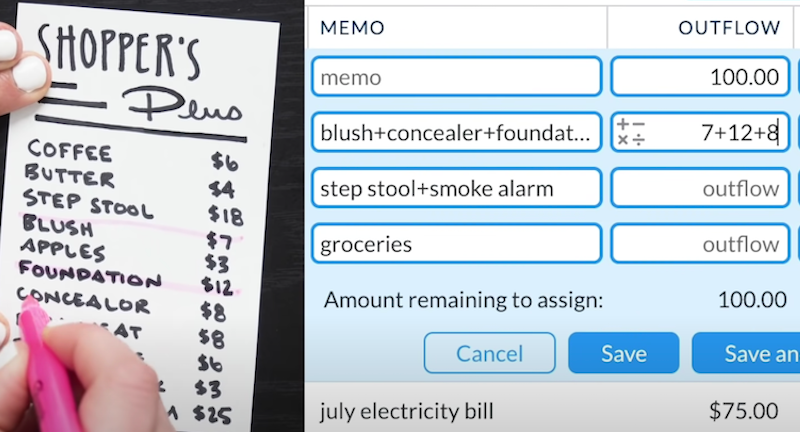 SHOPPER'S
Plus
COFFEE $6
BUTTER $4
STEP STOOL $18
BLUSH $7
APPLES $3
FOUNDATION $12
CONCEALOR $8
$8
$6
$3
$25
MEMO OUTFLOW
memo 100.00
blush+concealer+foundat... 7+12+8
step stool+smoke alarm outflow
groceries outflow
Amount remaining to assign: 100.00
Cancel Save Save an
july electricity bill $75.00